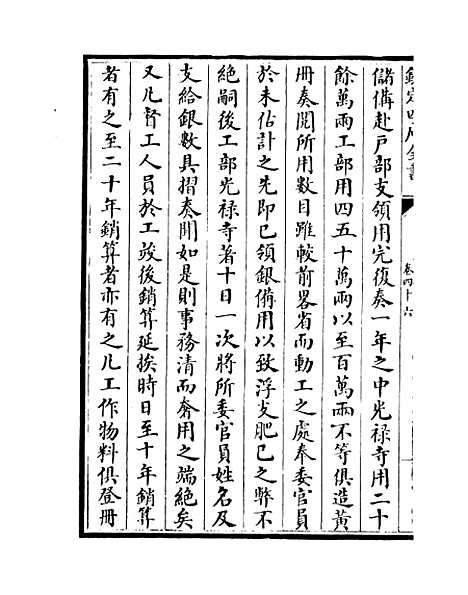 欽定四庫全書
卷四十六
儲備赴戶部支領用完復奏一年之中光禄寺用二十
餘萬兩工部用四五十萬兩以至百萬兩不等俱造黄
册奏閲所用數目雖較前畧省而動工之處奉委官員
於未估計之先即已領銀備用以致浮支肥己之弊不
絶嗣後工部光禄寺著十日一次將所委官員姓名及
支給銀數具摺奏聞如是則事務清而奢用之端絶矣
又凡督工人員於工竣後銷算延挨時日至十年銷算
者有之至二十年銷算者亦有之凡工作物料俱登冊